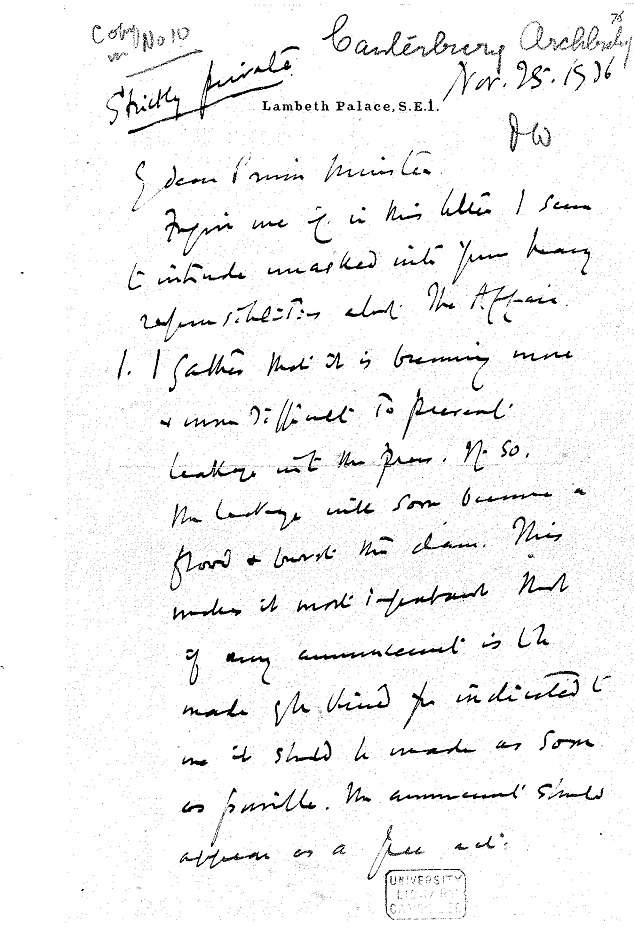 Copy
in No 10
Canterbury Archbishop
76
Strictly private
Nov. 25. 1936
Lambeth Palace, S.E.1.
My dear Prime Minister
Forgive me if in this letter I seem
to intrude unasked into your heavy
responsibilities about the Affair.
1. I gather that it is becoming more
& more difficult to prevent
leakage into the press. If so,
the leakage will soon become a
flood & burst the dam. This
makes it most important that
if any announcement is to be
made of the kind you indicated to
me it should be made as soon
as possible. The announcement should
appear as a free act.
UNIVERSITY
LIBRARY
CAMBRIDGE